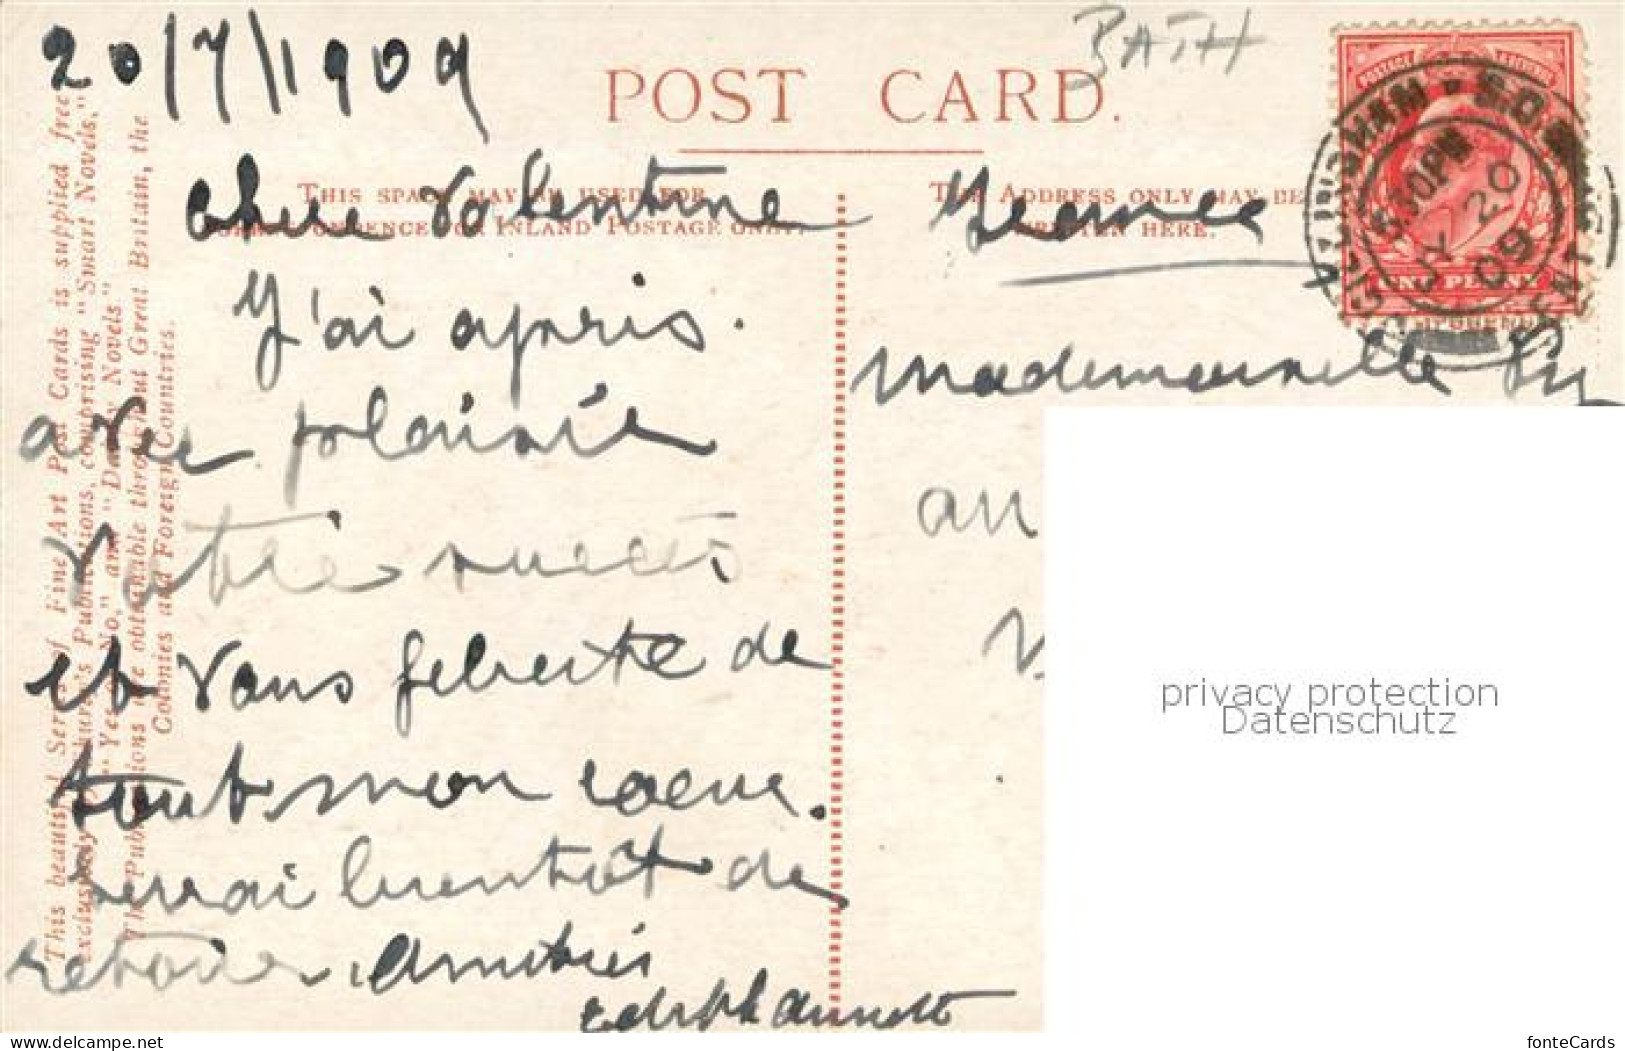 20/7/1909
BATH
POST CARD.
THIS SPACE MAY BE USED FOR
CORRESPONDENCE FOR INLAND POSTAGE ONLY.
THE ADDRESS ONLY MAY BE
WRITTEN HERE.
Chere Valentine
J'ai apris
avec plaisir
votre succès
et vous felicite de
tout mon coeur.
Serrai bientot de
retour. Amitiés
Mademoiselle
au
This beautiful Series of Fine Art Post Cards is supplied free
exclusively by Shurey's Publications, comprising "Smart Novels,"
"Yes or No," and "Dainty Novels"
The Publications are obtainable throughout Great Britain, the
Colonies and Foreign Countries.
POSTAGE
ONE PENNY
5.30PM
JY 20
09
privacy protection
Datenschutz
www.delcampe.net
fonteCards